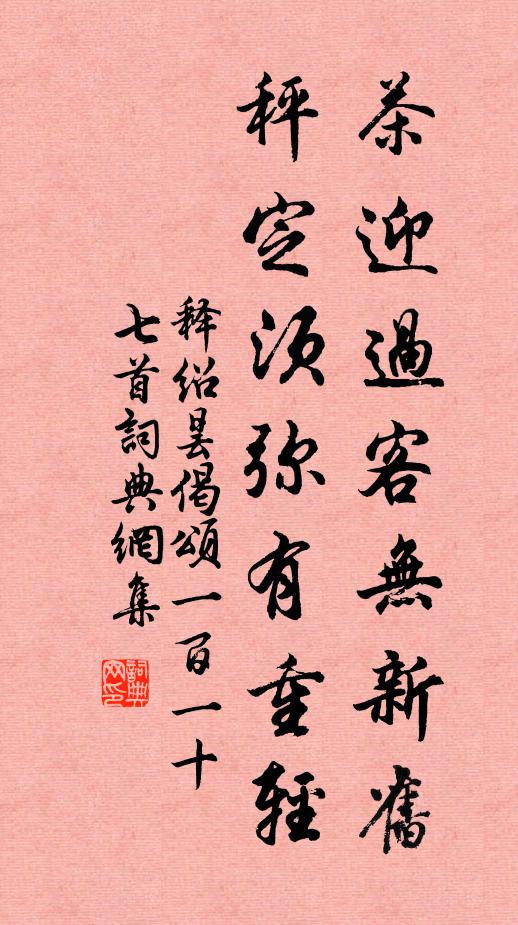 茶迎過客無新舊
秤定須弥有重輕
釋紹曇偈頌一百一十
七首詞典網集
詞典網印